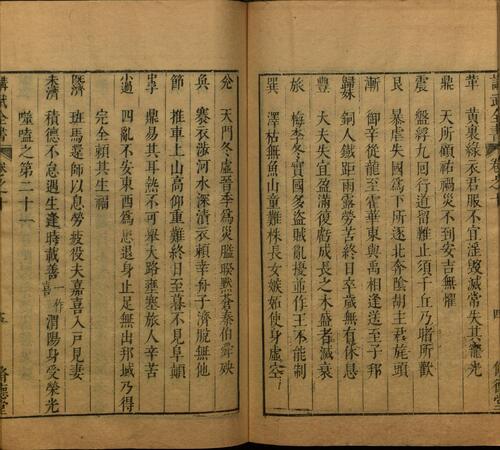 革 黄裏綠衣君服不宜淫毀滅常失其寵光
鼎 天所顧祐禍災不到安吉無懼
震 盤紆九回行道留難止須于丘乃睹所歡
艮 暴虐失國為下所逐北奔陰胡主君旄頭
漸 御辛從龍至霍華東與禹相逢送至子邦
歸妹 銅人鐵距雨露勞苦終日卒歲無有休息
豐 大夫失宜盈滿復虧成長之木盛者滅衰
旅 梅李冬實國多盜賊亂擾並作王不能制
巽 澤枯無魚山童難株長女嫉妬使身虛空
兌 天門冬虛晉季為災
渙 褰衣涉河水深漬衣賴幸舟子濟脫無他
節 推車上山高仰重難終日至暮不見阜顛
中孚 鼎易其耳熱不可舉大路壅塞旅人辛苦
小過 四亂不安東西為患退身止足無出邦域乃得
完全賴其生福
既濟 班馬還師以息勞疲役夫嘉喜入戶見妻
未濟 積德不息遇生逢時載善一作喜渭陽身受榮光
噬嗑之第二十一